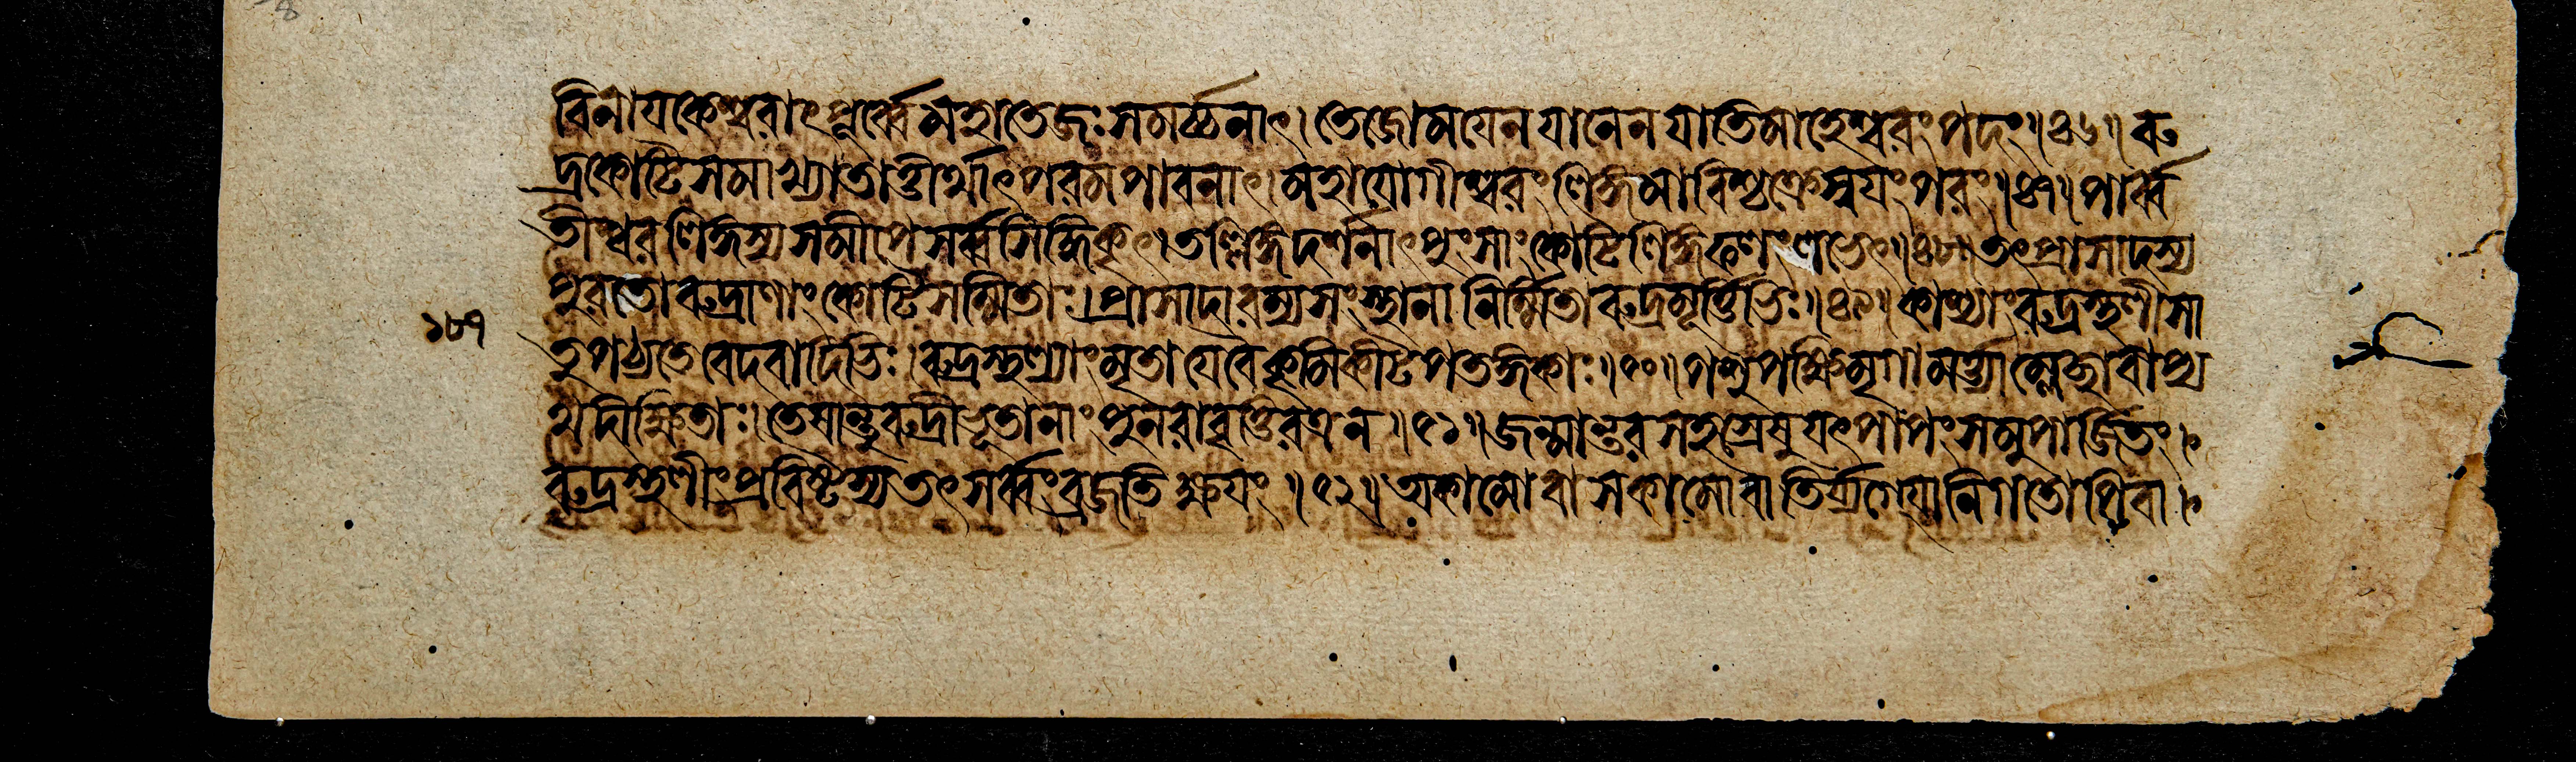 বিনাযকেশ্বরাৎপূর্ব্বেমহাতেজঃসমর্চ্চনাৎ।তেজোমযেনযানেনযাতিমাহেশ্বরংপদং॥৪৬॥রু
দ্রকোটিসমাখ্যাতাত্তীর্থাৎপরমপাবনাৎ।মহাযোগীশ্বরংলিঙ্গমাবিশ্চক্রেস্বযংপরং॥৪৭॥পার্ব্ব
তীশ্বরলিঙ্গস্যসমীপেসর্ব্বসিদ্ধিকৃৎ।তল্লিঙ্গদর্শনাৎপুংসাংকোটিলিঙ্গফলংলভেৎ॥৪৮॥তৎপ্রাসাদস্য
পুরতোরুদ্রাণাংকোটিসম্মিতাঃ।প্রাসাদারম্যসংস্থানানির্ম্মিতারুদ্রমূর্ত্তিভিঃ॥৪৯॥কাশ্যাংরুদ্রস্থলীসা
তুপঠ্যতেবেদবাদিভিঃ।রুদ্রস্থল্যাংমৃতাযেবৈকৃমিকীটপতঙ্গকাঃ॥৫০॥পশুপক্ষিমৃগামর্ত্ত্যাম্লেচ্ছাবাপ্য
থদীক্ষিতাঃ।তেষান্তুরুদ্রীভূতানাংপুনরাবৃত্তিরত্রন॥৫১॥জন্মান্তরসহস্রেষুযৎপাপংসমুপার্জ্জিতং।
১৮৭
রুদ্রস্থলীংপ্রবিষ্টস্যতৎসর্ব্বংব্রজতিক্ষযং॥৫২॥অকামোবাসকামোবাতির্য্যগ্যোনিগতোপিবা।